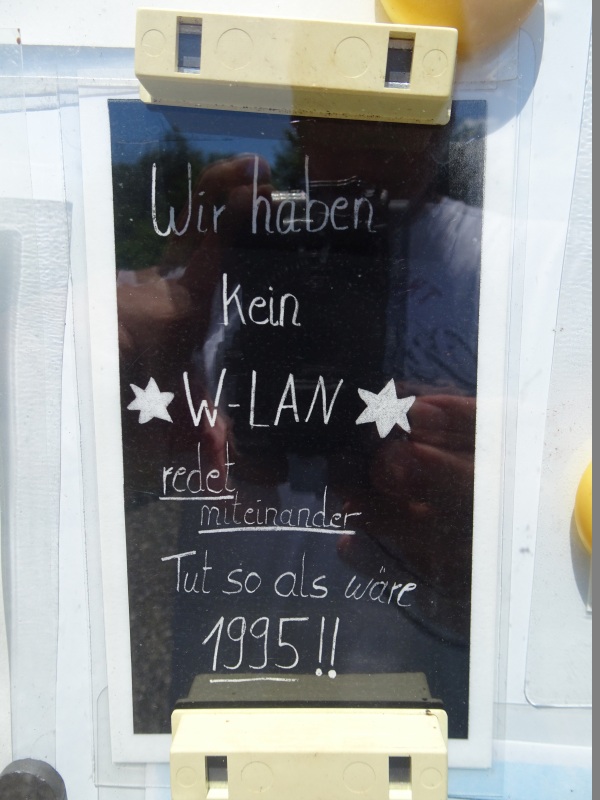 Wir haben
kein
W-LAN
redet
miteinander
Tut so als wäre
1995!!